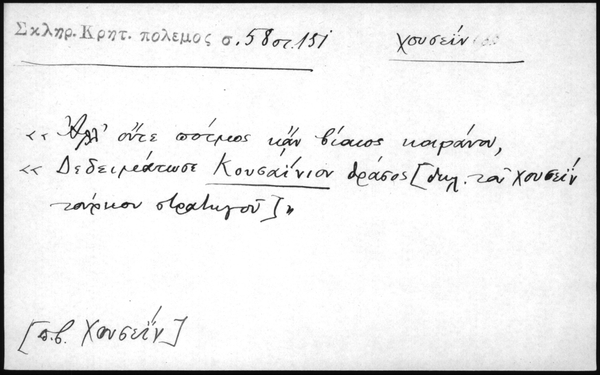 Σκληρ. Κρητ. πολεμος σ. 58 στ. 151 χουσεΐν
« Ἀλλ' οὔτε πότμος κἂν βίαιος κοιράνου,
« Δεδειμάτωσε Κουσαΐνιον θράσος [δηλ. τοῦ Χουσεΐν
τούρκου στρατηγοῦ] »
[π.β. Χουσεΐν]